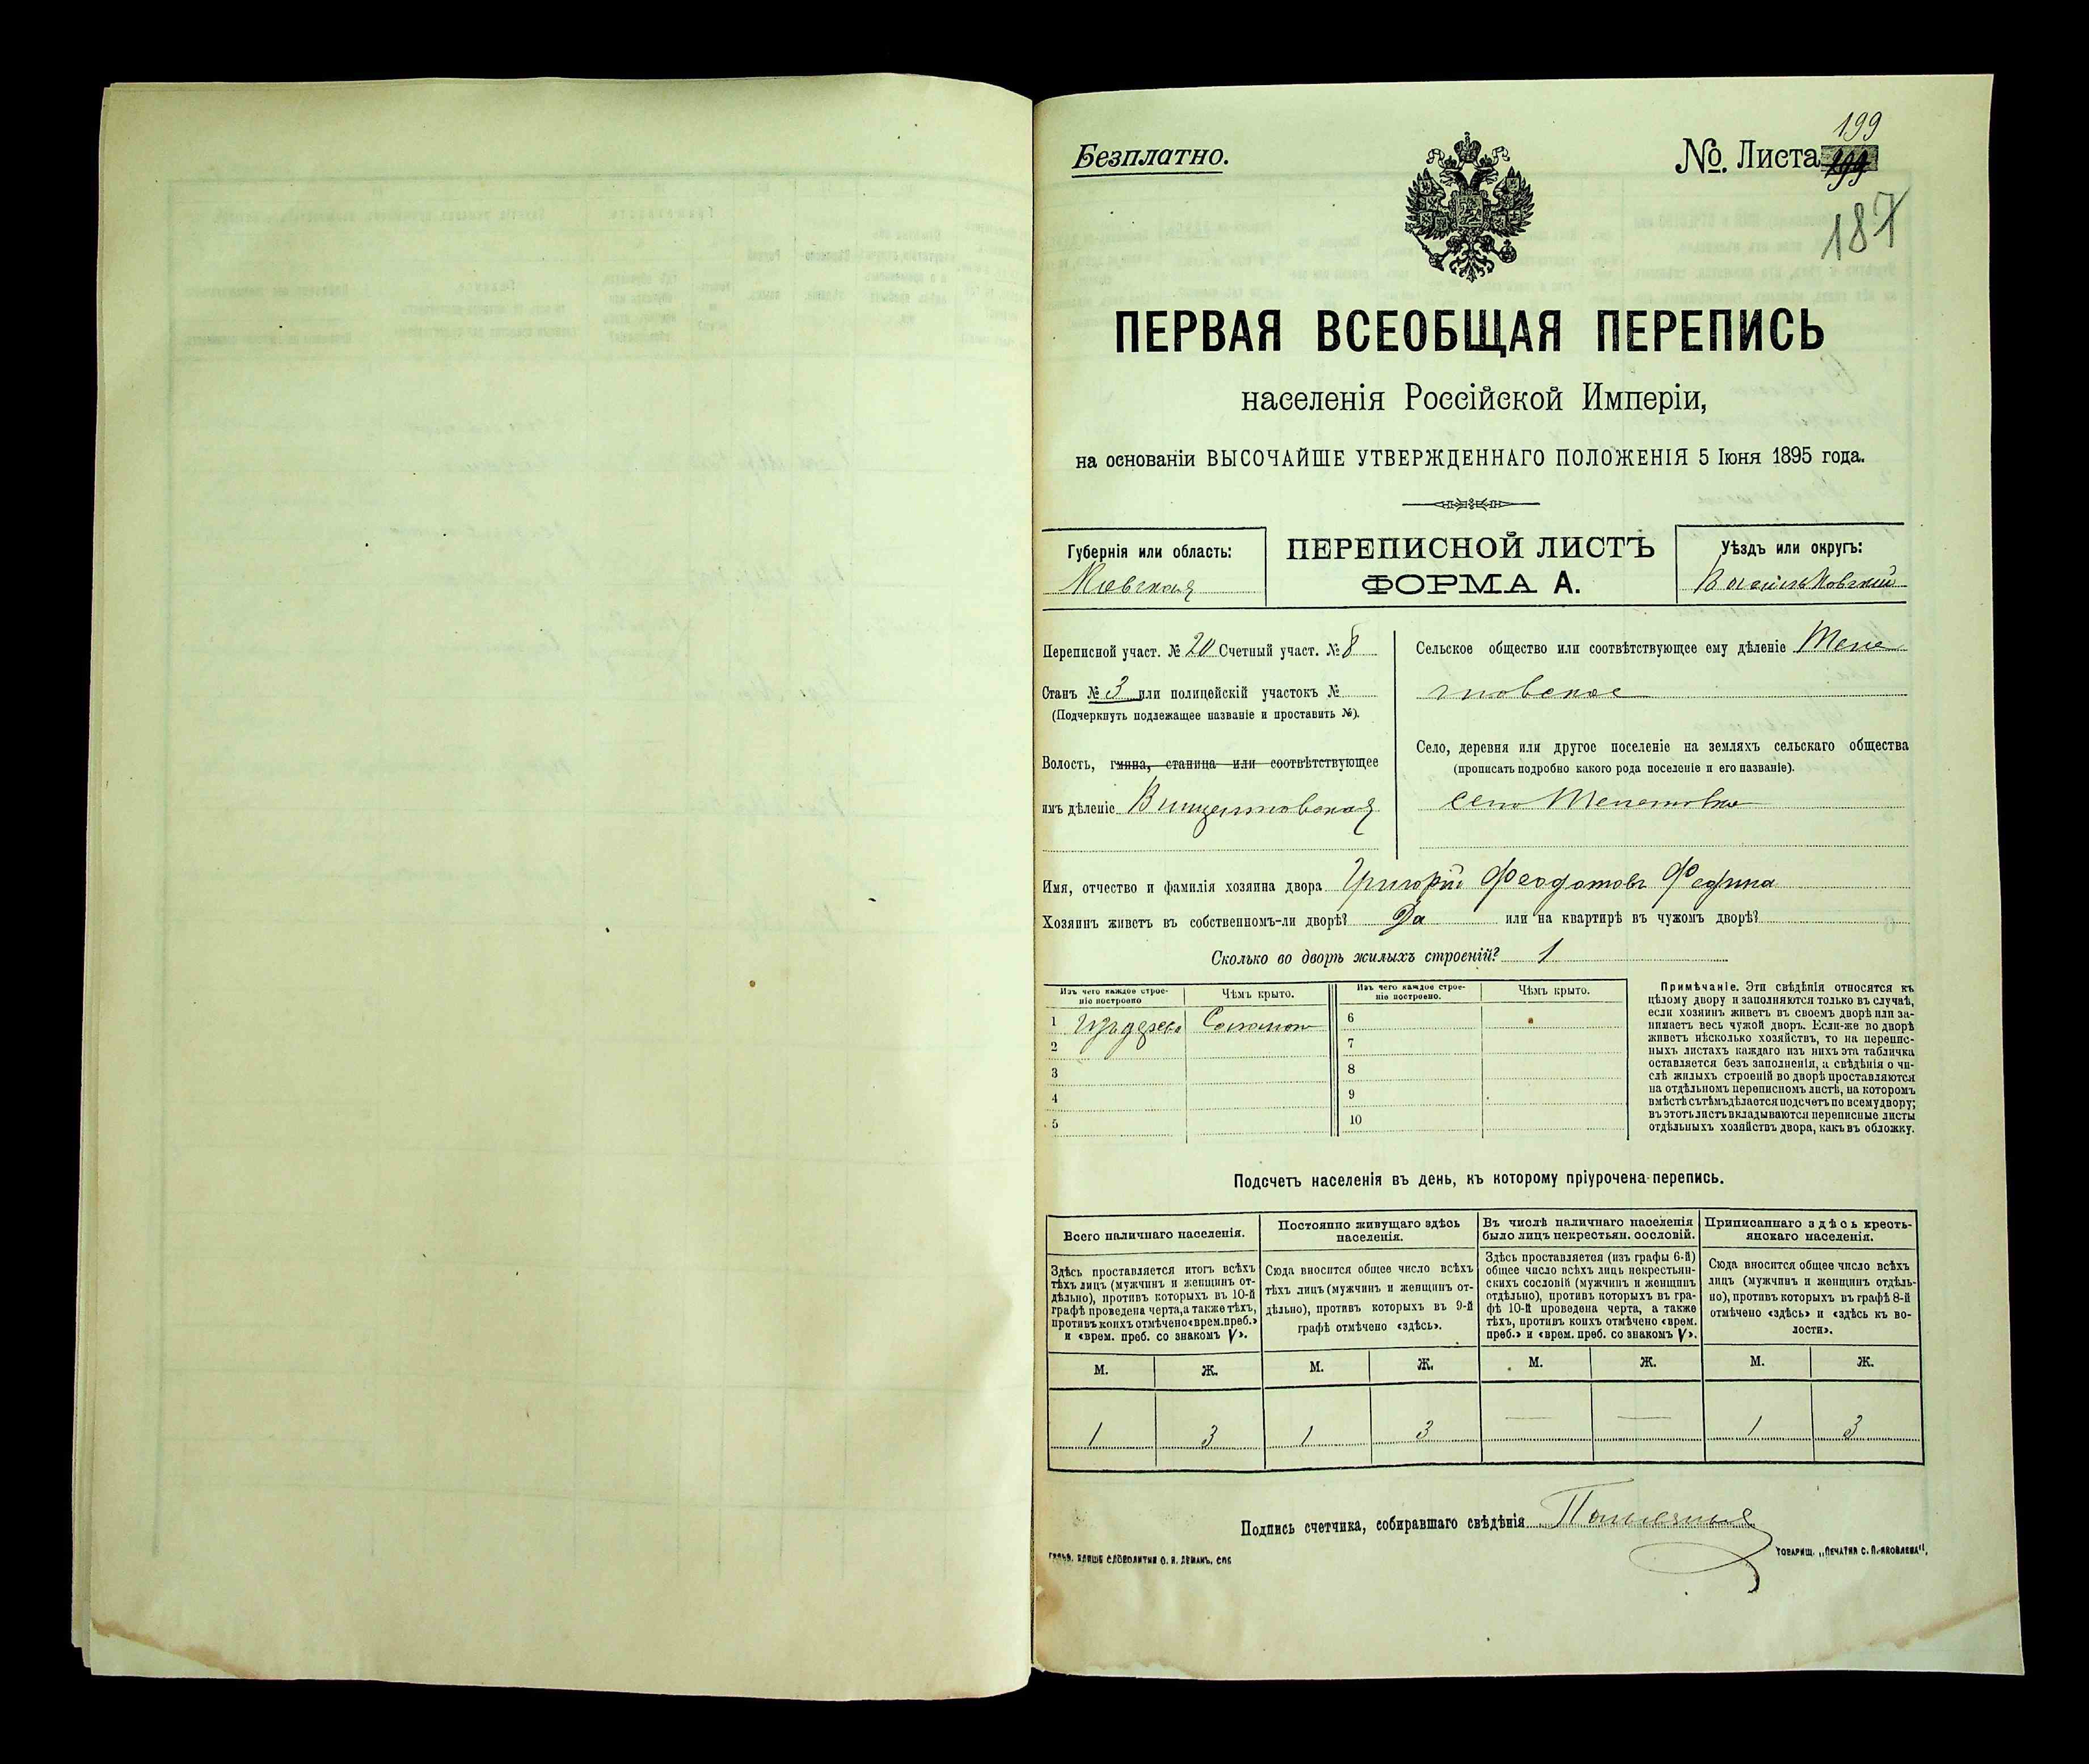 Безплатно.
№. Листа 199
187
ПЕРВАЯ ВСЕОБЩАЯ ПЕРЕПИСЬ
населенія Россійской Имперіи,
на основаніи ВЫСОЧАЙШЕ УТВЕРЖДЕННАГО ПОЛОЖЕНІЯ 5 Іюня 1895 года.
Губернія или область:
Кіевская
ПЕРЕПИСНОЙ ЛИСТЪ
ФОРМА А.
Уѣздъ или округъ:
Васильковскій
Переписной участ. № 20 Счетный участ. № 8
Станъ № 3 или полицейскій участокъ №
(Подчеркнуть подлежащее названіе и проставить №).
Волость, гмина, станица или соотвѣтствующее
имъ дѣленіе Винцентовская
Сельское общество или соотвѣтствующее ему дѣленіе
Село, деревня или другое поселеніе на земляхъ сельскаго общества
(прописать подробно какого рода поселеніе и его названіе).
село
Имя, отчество и фамилія хозяина двора Григорій Феодотовъ Федина
Хозяинъ живетъ въ собственномъ-ли дворѣ? Да или на квартирѣ въ чужомъ дворѣ?
Сколько во дворѣ жилыхъ строеній? 1
Изъ чего каждое строе-
ніе построено
Чѣмъ крыто.
Изъ чего каждое строе-
ніе построено.
Чѣмъ крыто.
1 Изъ дерева Соломою
2
3
4
5
6
7
8
9
10
Примѣчаніе. Эти свѣдѣнія относятся къ
цѣлому двору и заполняются только въ случаѣ,
если хозяинъ живетъ въ своемъ дворѣ или за-
нимаетъ весь чужой дворъ. Если-же во дворѣ
живетъ нѣсколько хозяйствъ, то на перепис-
ныхъ листахъ каждаго изъ нихъ эта табличка
оставляется безъ заполненія, а свѣдѣнія о чи-
слѣ жилыхъ строеній во дворѣ проставляются
на отдѣльномъ переписномъ листѣ, на которомъ
вмѣстѣ съ тѣмъ дѣлается подсчетъ по всему двору;
въ этотъ листъ вкладываются переписные листы
отдѣльныхъ хозяйствъ двора, какъ въ обложку.
Подсчетъ населенія въ день, къ которому пріурочена перепись.
Всего наличнаго населенія.
Здѣсь проставляется итогъ всѣхъ
тѣхъ лицъ (мужчинъ и женщинъ от-
дѣльно), противъ которыхъ въ 10-й
графѣ проведена черта, а также тѣхъ,
противъ коихъ отмѣчено «врем. преб.»
и «врем. преб. со знакомъ V».
Постоянно живущаго здѣсь
населенія.
Сюда вносится общее число всѣхъ
тѣхъ лицъ (мужчинъ и женщинъ от-
дѣльно), противъ которыхъ въ 9-й
графѣ отмѣчено «здѣсь».
Въ числѣ наличнаго населенія
было лицъ некрестьян. сословій.
Здѣсь проставляется (изъ графы 6-й)
общее число всѣхъ лицъ некрестьян-
скихъ сословій (мужчинъ и женщинъ
отдѣльно), противъ которыхъ въ гра-
фѣ 10-й проведена черта, а также
тѣхъ, противъ коихъ отмѣчено «врем.
преб.» и «врем. преб. со знакомъ V».
Приписаннаго здѣсь кресть-
янскаго населенія.
Сюда вносится общее число всѣхъ
лицъ (мужчинъ и женщинъ отдѣль-
но), противъ которыхъ въ графѣ 8-й
отмѣчено «здѣсь» и «здѣсь къ во-
лости».
М. Ж. М. Ж. М. Ж. М. Ж.
1 3 1 3 — — 1 3
Подпись счетчика, собиравшаго свѣдѣнія
СЛОВОЛИТНЯ О. И. ЛЕМАНЪ, СПБ
ТОВАРИЩ. „ПЕЧАТНЯ С. П. ЯКОВЛЕВА“.